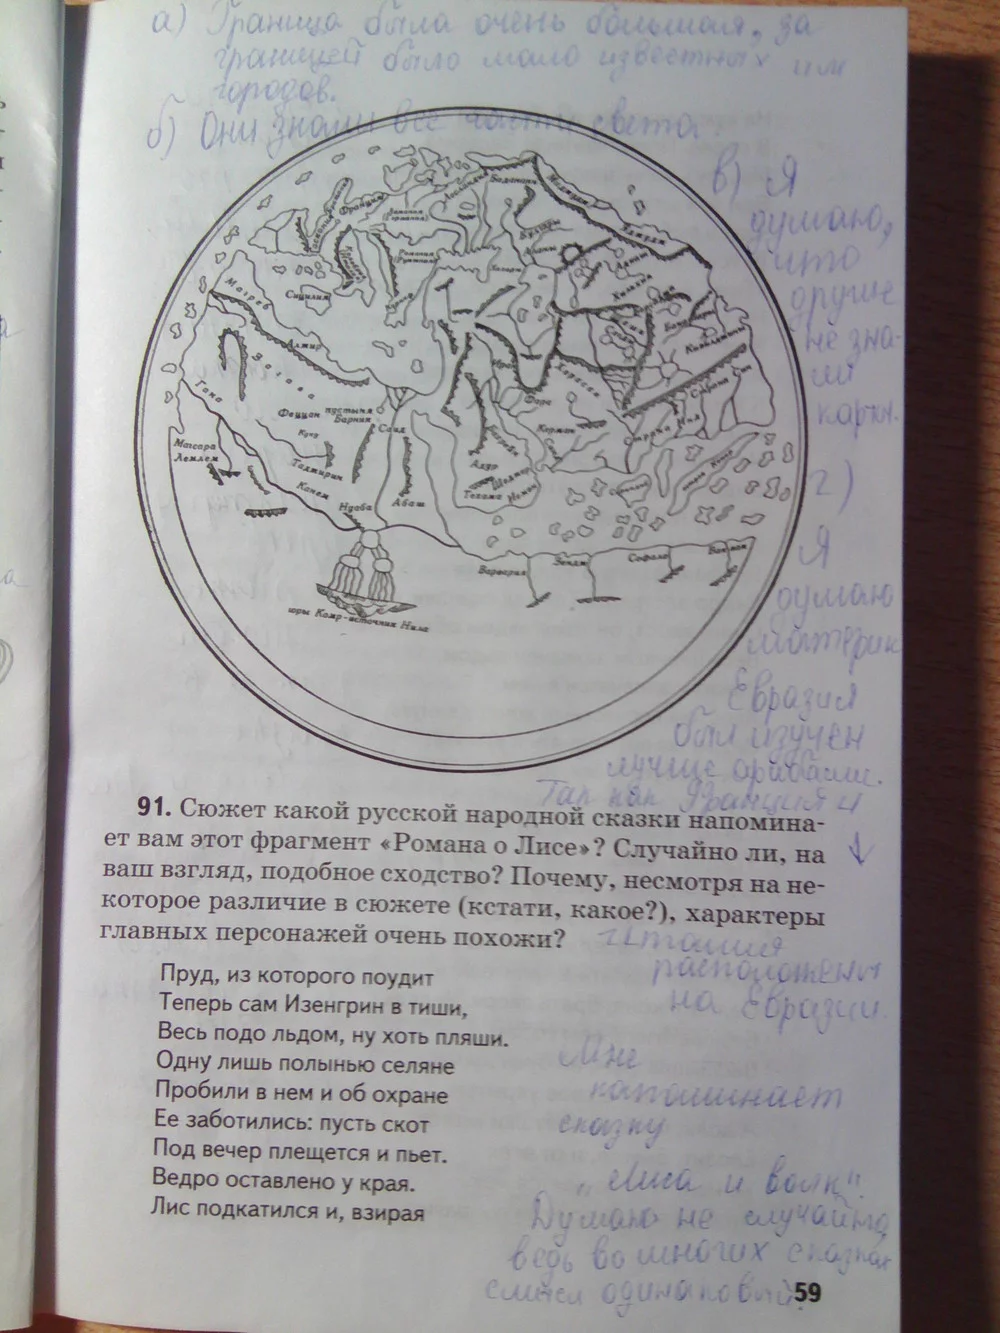 а) Граница была очень большая, за
границей было мало известных им
городов.
б) Они знали все части света
в) Я
думаю,
что
другие
не зна-
ли
карт.
г)
Я
думаю
материк
Евразия
был изучен
лучше арабами.
Так как Франция и
Италия
расположены
на Евразии.
Франция
Сицилия
Магриб
Алжир
Тана
Феццан
пустыня
Барник
Куку
Таджирин
Канем
Магзара
Лемлем
Нуаба
Саид
Абаш
Керман
Фарс
Хорасан
Техама
Йемен
Варвария
Зендж
Софала
Ваквак
горы Комр-источник Нила
91. Сюжет какой русской народной сказки напомина-
ет вам этот фрагмент «Романа о Лисе»? Случайно ли, на
ваш взгляд, подобное сходство? Почему, несмотря на не-
которое различие в сюжете (кстати, какое?), характеры
главных персонажей очень похожи?
Пруд, из которого поудит
Теперь сам Изенгрин в тиши,
Весь подо льдом, ну хоть пляши.
Одну лишь полынью селяне
Пробили в нем и об охране
Ее заботились: пусть скот
Под вечер плещется и пьет.
Ведро оставлено у края.
Лис подкатился и, взирая
Мне
напоминает
сказку
„Лиса и волк".
Думаю не случайно,
ведь во многих сказках
смысл одинаковый.
59